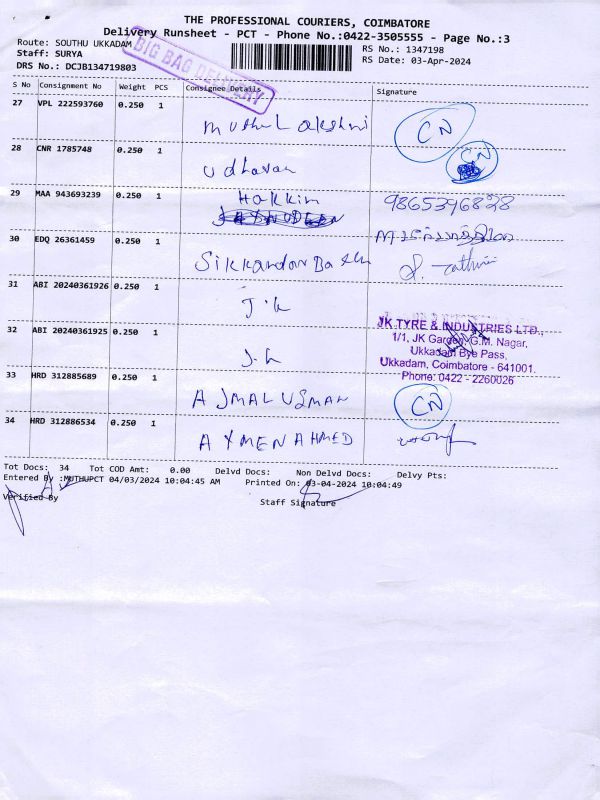 THE PROFESSIONAL COURIERS, COIMBATORE
Delivery Runsheet - PCT - Phone No.:0422-3505555 - Page No.:3
Route: SOUTHU UKKADAM
RS No.: 1347198
Staff: SURYA
RS Date: 03-Apr-2024
DRS No.: DCJB134719803
BIG BAG DELIVERY
S No Consignment No Weight PCS Consignee Details Signature
27 VPL 222593760 0.250 1
Muthu Lakshmi CN
28 CNR 1785748 0.250 1
Udhavan CN
29 MAA 943693239 0.250 1 Hakkim 9865396828
30 EDQ 26361459 0.250 1
Sikkandar Basha
31 ABI 20240361926 0.250 1
J.k
32 ABI 20240361925 0.250 1
J.k
JK TYRE & INDUSTRIES LTD.,
1/1, JK Garden, G.M. Nagar,
Ukkadam Bye Pass,
Ukkadam, Coimbatore - 641001.
Phone: 0422 - 2260026
33 HRD 312885689 0.250 1
AJMAL USMAN CN
34 HRD 312886534 0.250 1
AYMEN AHMED
Tot Docs: 34 Tot COD Amt: 0.00 Delvd Docs: Non Delvd Docs: Delvy Pts:
Entered By :MUTHUPCT 04/03/2024 10:04:45 AM Printed On: 03-04-2024 10:04:49
Verified By Staff Signature